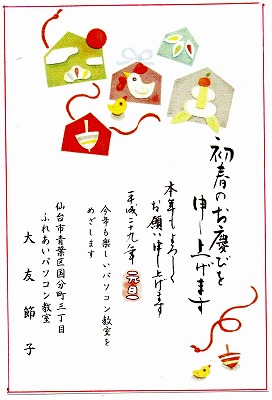 初春のお慶びを
申し上げます
本年もよろしく
お願い申し上げます
平成二十九年 元旦
今年も楽しいパソコン教室を
めざします
仙台市青葉区国分町三丁目
ふれあいパソコン教室
大友節子